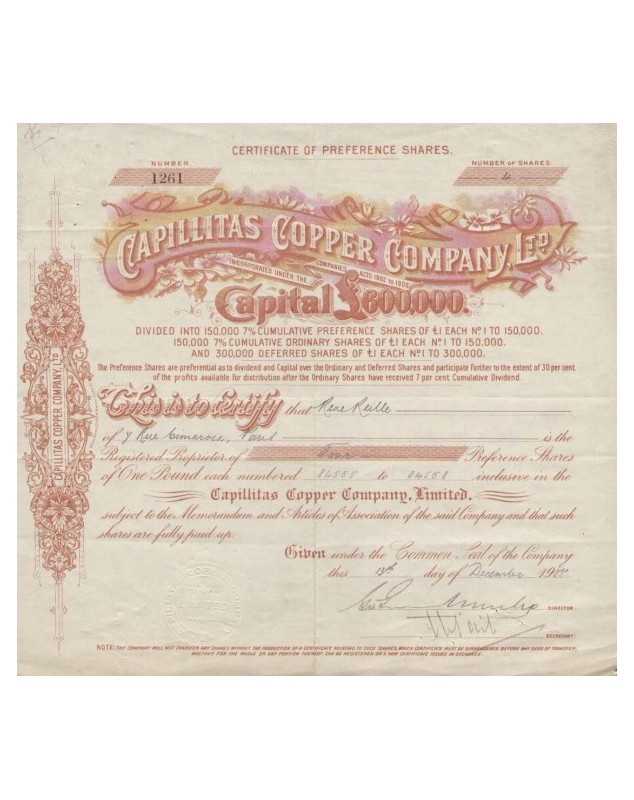 CERTIFICATE OF PREFERENCE SHARES.
NUMBER
1261
NUMBER OF SHARES
4
CAPILLITAS COPPER COMPANY, LTD
INCORPORATED UNDER THE COMPANIES ACTS 1862 TO 1900.
Capital £600,000.
DIVIDED INTO 150,000 7% CUMULATIVE PREFERENCE SHARES OF £1 EACH Nos 1 TO 150,000.
150,000 7% CUMULATIVE ORDINARY SHARES OF £1 EACH Nos 1 TO 150,000.
AND 300,000 DEFERRED SHARES OF £1 EACH Nos 1 TO 300,000.
The Preference Shares are preferential as to dividend and Capital over the Ordinary and Deferred Shares and participate further to the extent of 30 per cent
of the profits available for distribution after the Ordinary Shares have received 7 per cent Cumulative Dividend
This is to Certify that René Reille
of 7 Rue Cimarosa, Paris is the
Registered Proprietor of Four Preference Shares
of One Pound each numbered 84555 to 84558 inclusive in the
Capillitas Copper Company, Limited.
subject to the Memorandum and Articles of Association of the said Company and that such
shares are fully paid up.
Given under the Common Seal of the Company
this 13th day of December 190
DIRECTOR.
SECRETARY.
NOTE: THE COMPANY WILL NOT TRANSFER ANY SHARES WITHOUT THE PRODUCTION OF A CERTIFICATE RELATING TO SUCH SHARES, WHICH CERTIFICATE MUST BE SURRENDERED BEFORE ANY DEED OF TRANSFER,
WHETHER FOR THE WHOLE OR ANY PORTION THEREOF, CAN BE REGISTERED OR A NEW CERTIFICATE ISSUED IN EXCHANGE.
CAPILLITAS COPPER COMPANY, LTD